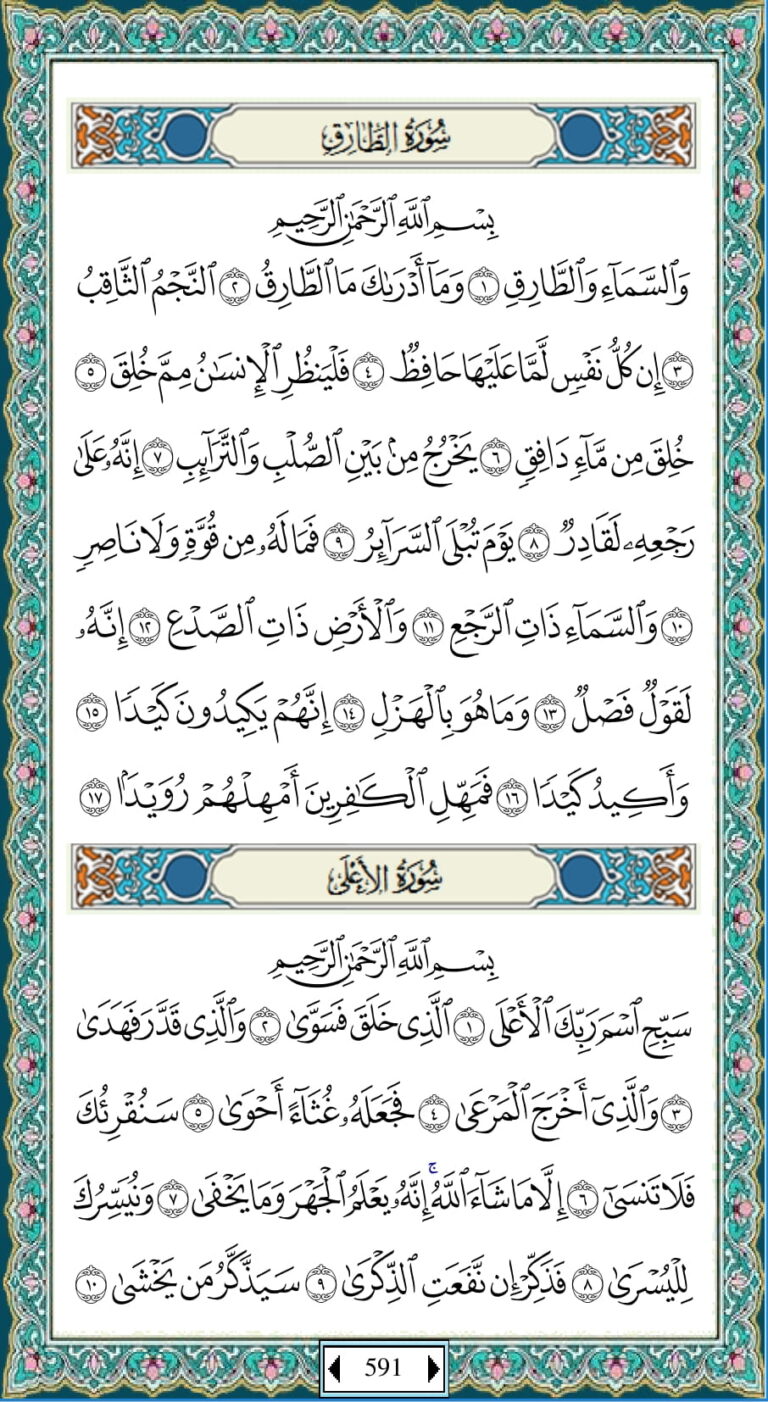 سُورَةُ الطَّارِقِ
بِسْمِ ٱللَّهِ ٱلرَّحْمَٰنِ ٱلرَّحِيمِ
وَٱلسَّمَآءِ وَٱلطَّارِقِ ١ وَمَآ أَدْرَىٰكَ مَا ٱلطَّارِقُ ٢ ٱلنَّجْمُ ٱلثَّاقِبُ
٣ إِن كُلُّ نَفْسٍ لَّمَّا عَلَيْهَا حَافِظٌ ٤ فَلْيَنظُرِ ٱلْإِنسَٰنُ مِمَّ خُلِقَ ٥
خُلِقَ مِن مَّآءٍ دَافِقٍ ٦ يَخْرُجُ مِنۢ بَيْنِ ٱلصُّلْبِ وَٱلتَّرَآئِبِ ٧ إِنَّهُۥ عَلَىٰ
رَجْعِهِۦ لَقَادِرٌ ٨ يَوْمَ تُبْلَى ٱلسَّرَآئِرُ ٩ فَمَا لَهُۥ مِن قُوَّةٍ وَلَا نَاصِرٍ
١٠ وَٱلسَّمَآءِ ذَاتِ ٱلرَّجْعِ ١١ وَٱلْأَرْضِ ذَاتِ ٱلصَّدْعِ ١٢ إِنَّهُۥ
لَقَوْلٌ فَصْلٌ ١٣ وَمَا هُوَ بِٱلْهَزْلِ ١٤ إِنَّهُمْ يَكِيدُونَ كَيْدًا ١٥
وَأَكِيدُ كَيْدًا ١٦ فَمَهِّلِ ٱلْكَٰفِرِينَ أَمْهِلْهُمْ رُوَيْدًۢا ١٧
سُورَةُ الأَعْلَىٰ
بِسْمِ ٱللَّهِ ٱلرَّحْمَٰنِ ٱلرَّحِيمِ
سَبِّحِ ٱسْمَ رَبِّكَ ٱلْأَعْلَى ١ ٱلَّذِى خَلَقَ فَسَوَّىٰ ٢ وَٱلَّذِى قَدَّرَ فَهَدَىٰ
٣ وَٱلَّذِىٓ أَخْرَجَ ٱلْمَرْعَىٰ ٤ فَجَعَلَهُۥ غُثَآءً أَحْوَىٰ ٥ سَنُقْرِئُكَ
فَلَا تَنسَىٰٓ ٦ إِلَّا مَا شَآءَ ٱللَّهُ ۚ إِنَّهُۥ يَعْلَمُ ٱلْجَهْرَ وَمَا يَخْفَىٰ ٧ وَنُيَسِّرُكَ
لِلْيُسْرَىٰ ٨ فَذَكِّرْ إِن نَّفَعَتِ ٱلذِّكْرَىٰ ٩ سَيَذَّكَّرُ مَن يَخْشَىٰ ١٠
591